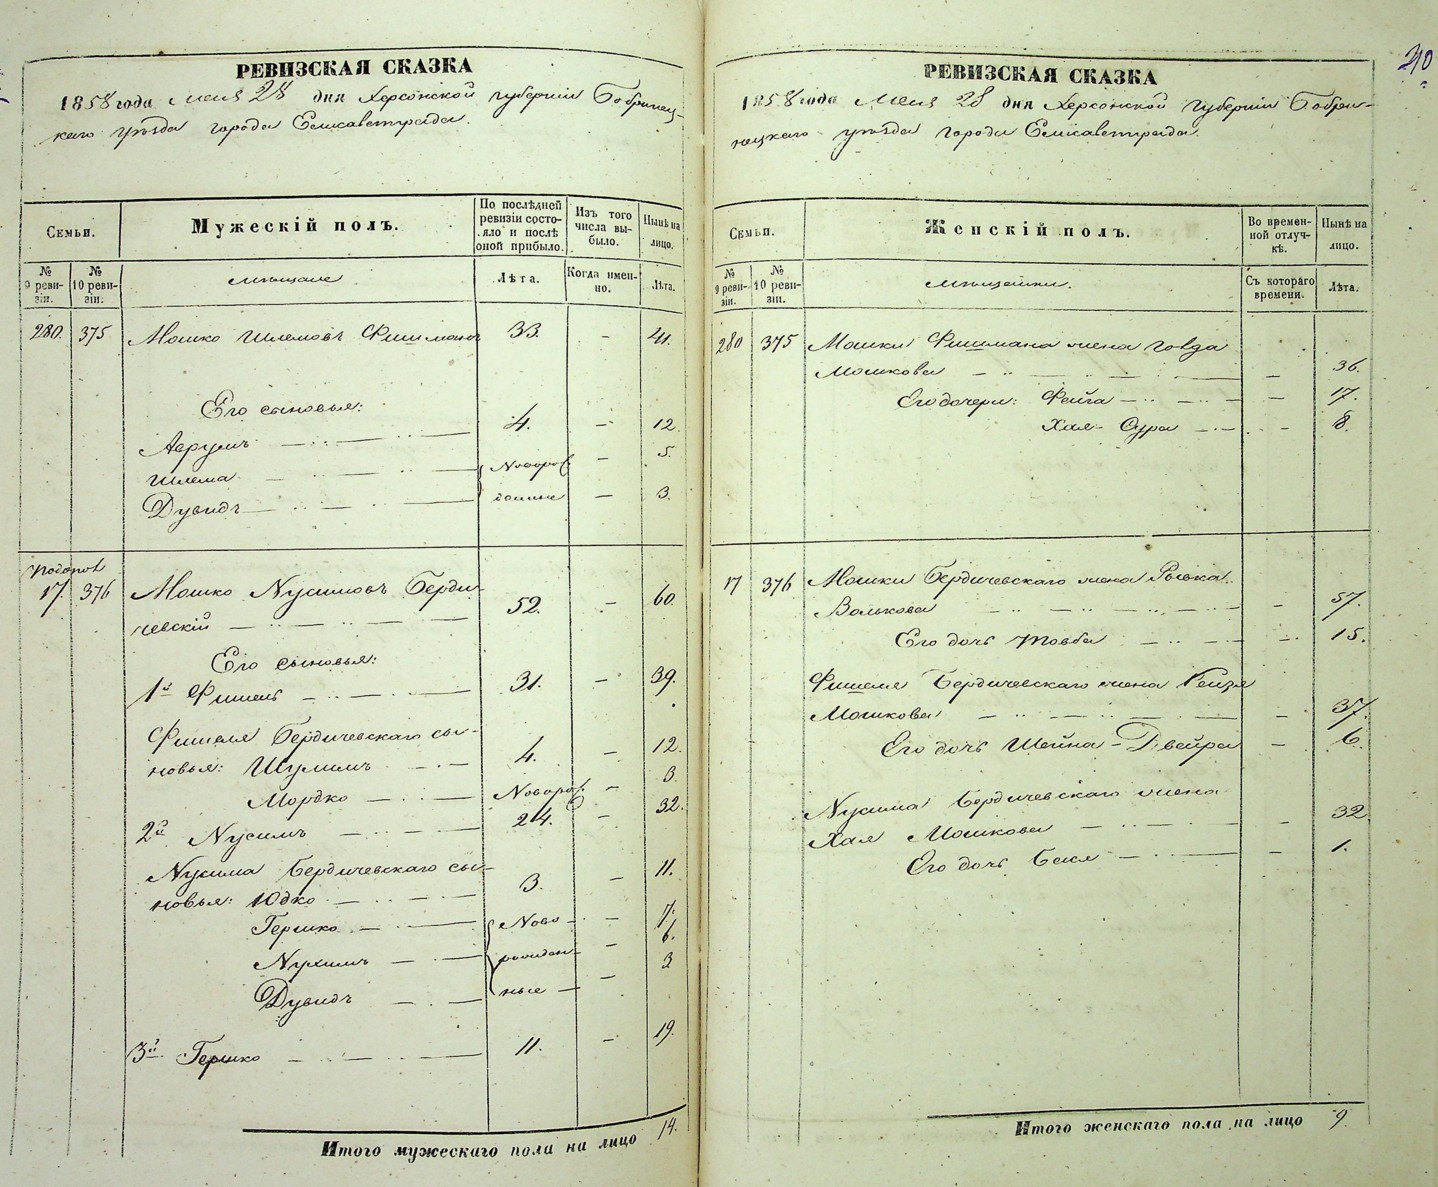 РЕВИЗСКАЯ СКАЗКА
1858 года Мая 28 дня Херсонской губерніи Бобринец-
каго уѣзда города Елисаветграда.
Семьи.
Мужескій полъ.
По послѣдней ревизіи состояло и послѣ оной прибыло.
Изъ того числа выбыло.
Нынѣ на лицо.
№ 9 ревизіи.
№ 10 ревизіи.
мѣщане
Лѣта.
Когда именно.
Лѣта.
280. 375 Мошко Шлемовъ Фишманъ 33. – 41.
Его сыновья:
Аврумъ 4. – 12.
Шлема Новорож – 5.
Дувидъ – 3.
17. 376 Мошко Нусимовъ Берди-
чевскій 52. – 60.
Его сыновья:
1й Фишель 31. – 39.
Фишеля Бердичевскаго сы-
новья: Шулимъ 4. – 12.
Мордко Новорож. – 3.
2й Нусимъ 24. – 32.
Нусима Бердичевскаго сы-
новья: Юдко 3. – 11.
Гершко Ново- – 7.
Нухимъ рожден- – 6.
Дувидъ ные – 3
3й Гершко 11. – 19.
Итого мужескаго пола на лицо 14.
210
РЕВИЗСКАЯ СКАЗКА
1858 года Мая 28 дня Херсонской губерніи Бобри-
нецкаго уѣзда города Елисаветграда.
Семьи.
Женскій полъ.
Во временной отлучкѣ.
Нынѣ на лицо.
№ 9 ревизіи.
№ 10 ревизіи.
мѣщанки.
Съ котораго времени.
Лѣта.
280 375 Мошки Фишмана жена Говда
Мошкова – 36.
Его дочери: Фейга – 17.
Хая-Сура – 8.
17 376 Мошки Бердичевскаго жена Рывка
Волькова – 57.
Его дочь Товба – 15.
Фишеля Бердичевскаго жена Рейзя
Мошкова – 37.
Его дочь Шейна-Двейра – 6.
Нусима Бердичевскаго жена
Хая Мошкова – 32
Его дочь Бася – 1.
Итого женскаго пола на лицо 9.